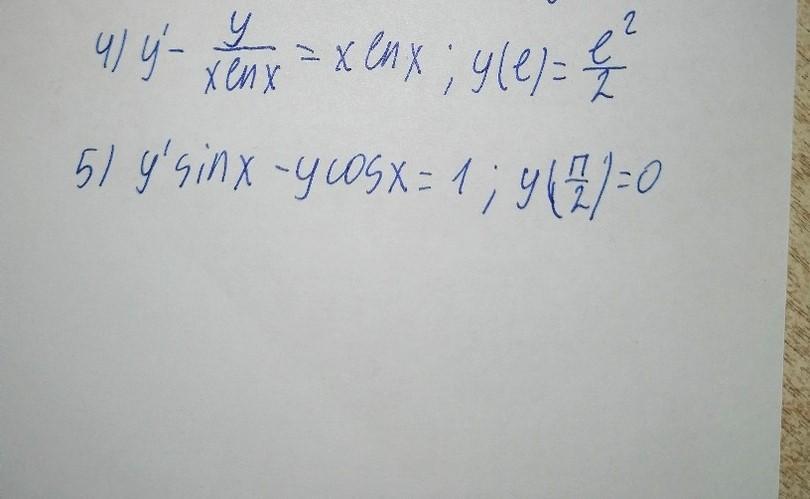 4) y' - y/(x ln x) = x ln x ; y(e) = e²/2
5) y' sin x - y cos x = 1 ; y(π/2) = 0